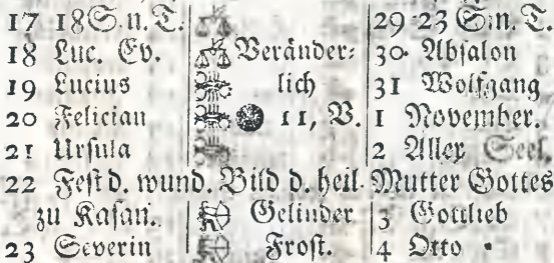 17 18 S. n. T. 29 23 S. n. T.
18 Luc. Ev. Veränder= 30 Abſalon
19 Lucius lich 31 Wolfgang
20 Felician 11, V. 1 November.
21 Urſula 2 Aller Seel.
22 Feſt d. wund. Bild d. heil. Mutter Gottes
zu Kaſan. Gelinder 3 Gottlieb
23 Severin Froſt. 4 Otto